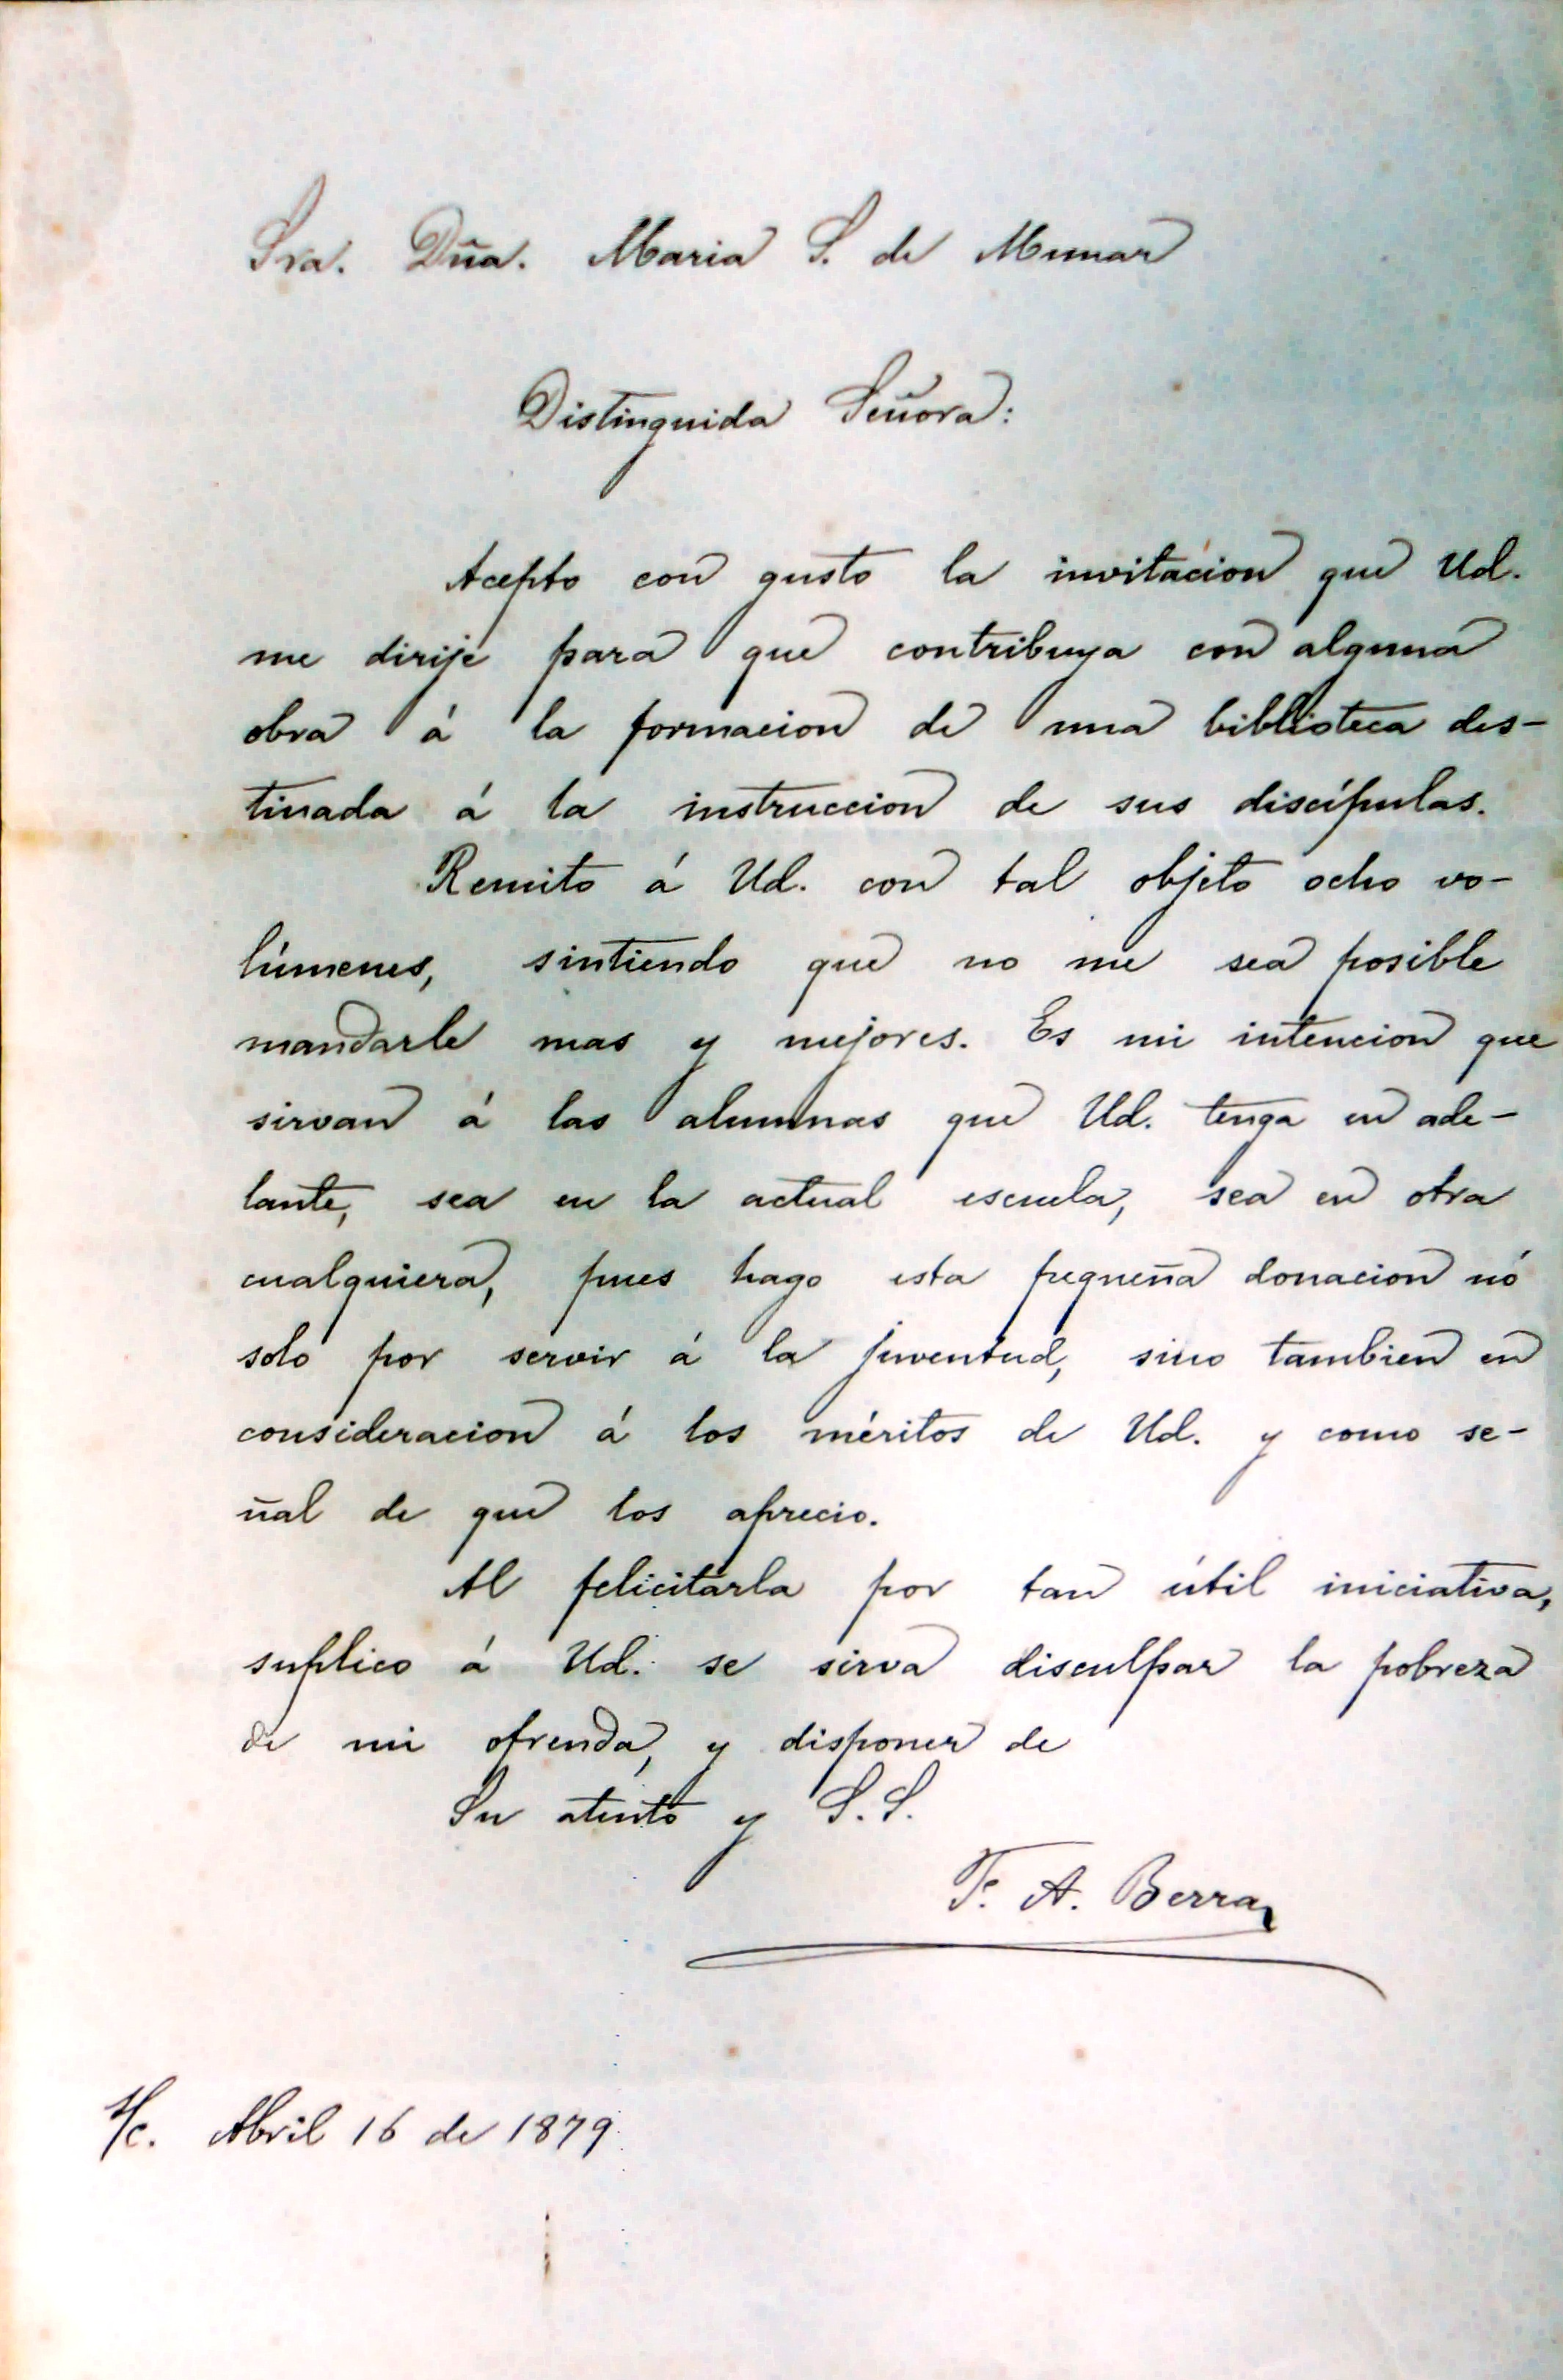 Sra. Dña. Maria S. de Munar
Distinguida Señora:
Acepto con gusto la invitacion que Ud.
me dirije para que contribuya con alguna
obra á la formacion de una biblioteca des-
tinada á la instruccion de sus discípulas.
Remito á Ud. con tal objeto ocho vo-
lúmenes, sintiendo que no me sea posible
mandarle mas y mejores. Es mi intencion que
sirvan á las alumnas que Ud. tenga en ade-
lante, sea en la actual escuela, sea en otra
cualquiera, pues hago esta pequeña donacion nó
solo por servir á la juventud, sino tambien en
consideracion á los méritos de Ud. y como se-
ñal de que los aprecio.
Al felicitarla por tan útil iniciativa,
suplico á Ud. se sirva disculpar la pobreza
de mi ofrenda, y disponer de
Su atento y S.S.
F. A. Berra
S/c. Abril 16 de 1879